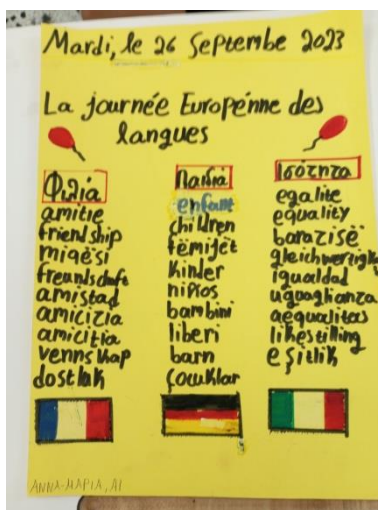 Mardi, le 26 Septembre 2023
La journée Europénne des
langues
Φιλία
amitie
friendship
miqësi
freundschaft
amistad
amicizia
amicitia
vennskap
dostluk
Παιδιά
enfant
children
fëmijët
kinder
niños
bambini
liberi
barn
çocuklar
Ισότητα
egalite
equality
barazisë
gleichwertigkeit
igualdad
uguaglianza
aequalitas
likestilling
eşitlik
ANNA-ΜΑΡΙΑ, Α1